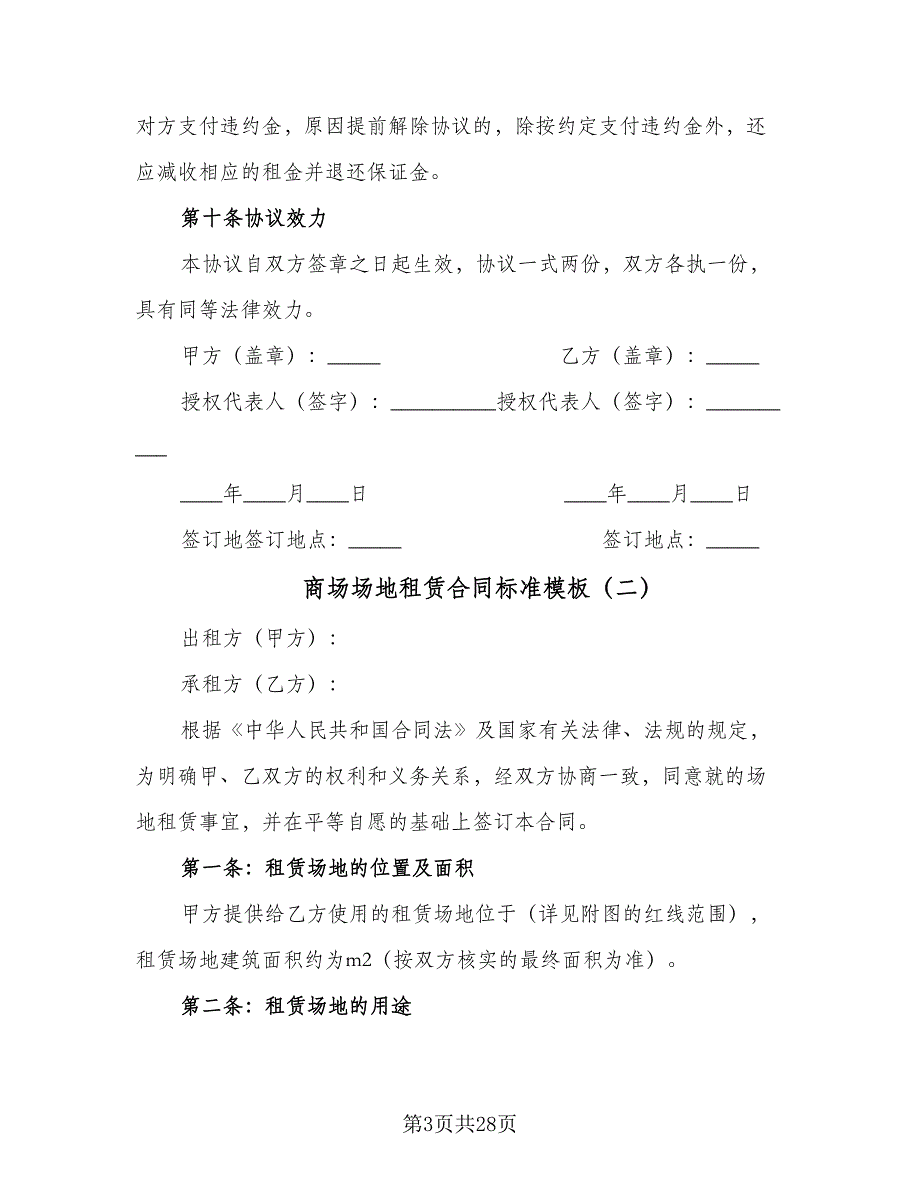 对方支付违约金，原因提前解除协议的，除按约定支付违约金外，还
应减收相应的租金并退还保证金。
第十条协议效力
本协议自双方签章之日起生效，协议一式两份，双方各执一份，
具有同等法律效力。
甲方（盖章）：_____ 乙方（盖章）：_____
授权代表人（签字）：__________授权代表人（签字）：_______
___
____年____月____日 ____年____月____日
签订地签订地点：_____ 签订地点：_____
商场场地租赁合同标准模板（二）
出租方（甲方）：
承租方（乙方）：
根据《中华人民共和国合同法》及国家有关法律、法规的规定，
为明确甲、乙双方的权利和义务关系，经双方协商一致，同意就的场
地租赁事宜，并在平等自愿的基础上签订本合同。
第一条：租赁场地的位置及面积
甲方提供给乙方使用的租赁场地位于（详见附图的红线范围），
租赁场地建筑面积约为m2（按双方核实的最终面积为准）。
第二条：租赁场地的用途
第3页共28页